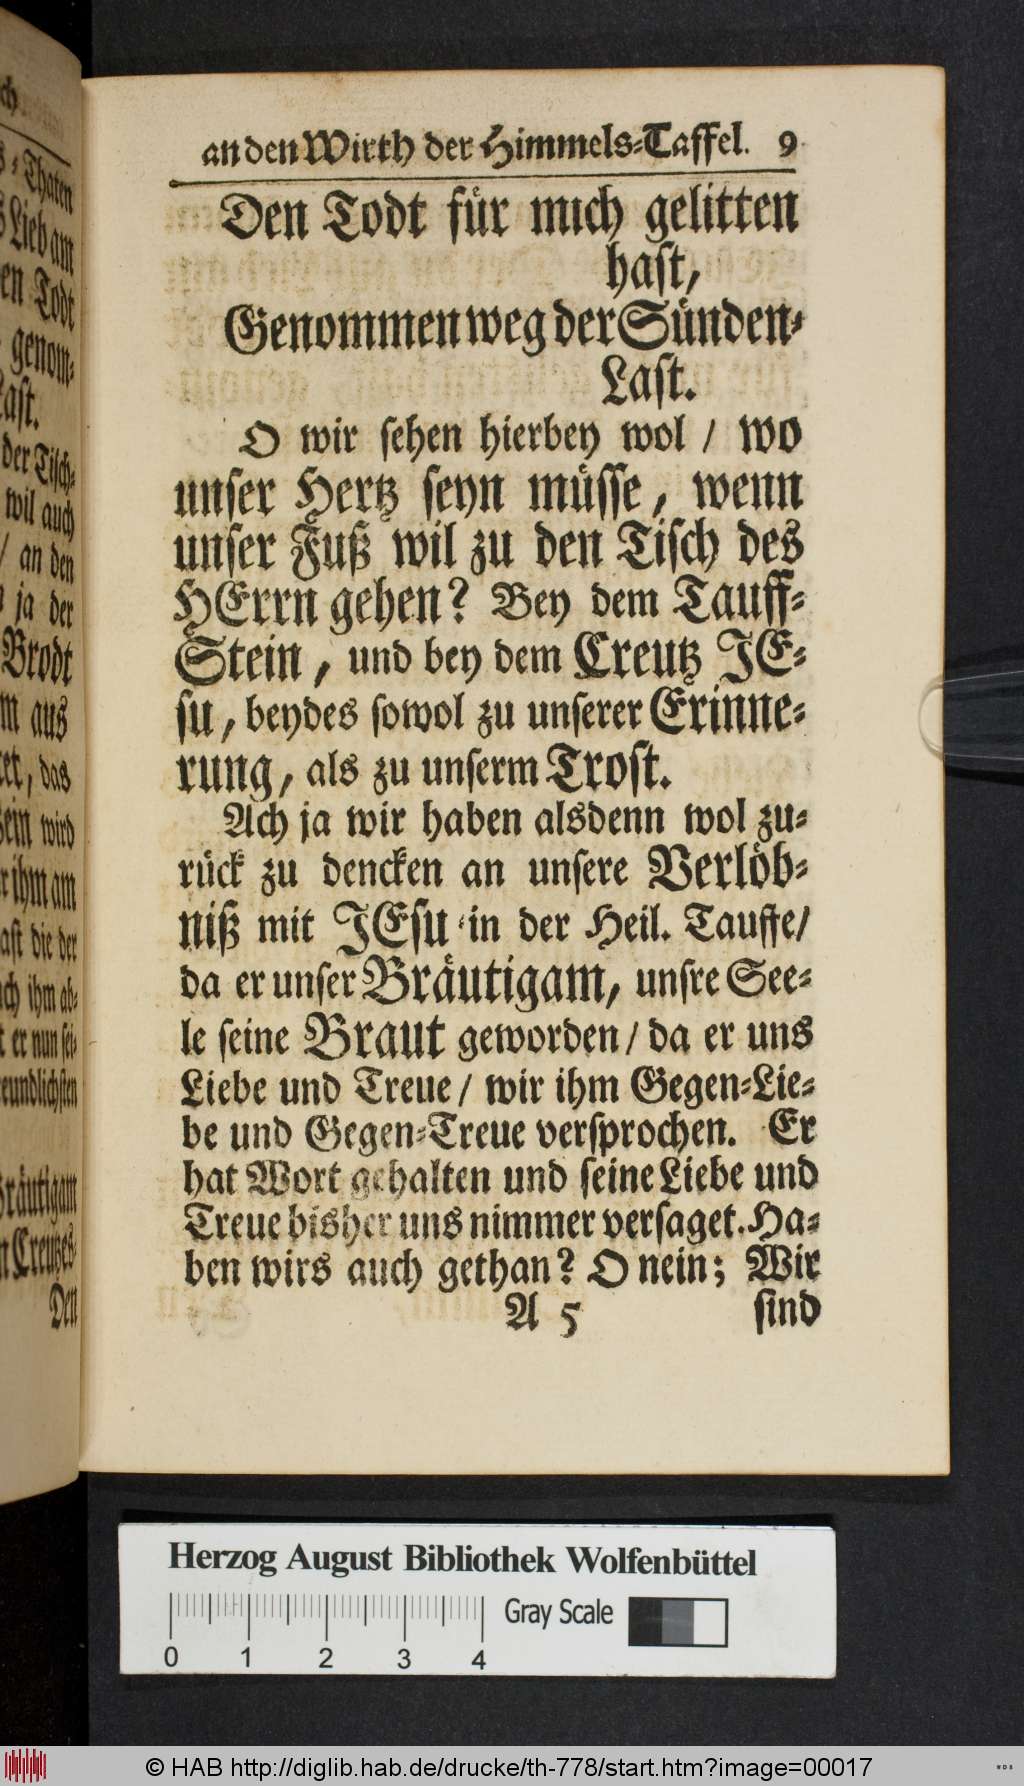 an den Wirth der Himmels-Taffel. 9
Den Todt für mich gelitten
hast,
Genommen weg der Sünden-
Last.
O wir sehen hierbey wol / wo
unser Hertz seyn müsse, wenn
unser Fuß wil zu den Tisch des
HErrn gehen? Bey dem Tauff-
Stein, und bey dem Creutz JE-
su, beydes sowol zu unserer Erinne-
rung, als zu unserm Trost.
Ach ja wir haben alsdenn wol zu-
rück zu dencken an unsere Verlöb-
niß mit JEsu in der Heil. Tauffe/
da er unser Bräutigam, unsre See-
le seine Braut geworden / da er uns
Liebe und Treue / wir ihm Gegen-Lie-
be und Gegen-Treue versprochen. Er
hat Wort gehalten und seine Liebe und
Treue bisher uns nimmer versaget. Ha-
ben wirs auch gethan? O nein; Wir
A 5 sind
Thaten
Lieb am
en Todt
genom-
ast.
der Tisch-
wil auch
/ an den
ja der
Brodt
m aus
et, das
ein wird
r ihm am
ast die der
ch ihm ab-
t er nun sei-
eundlichsten
räutigam
n Creutzes-
Den
Herzog August Bibliothek Wolfenbüttel
Gray Scale
0 1 2 3 4
© HAB http://diglib.hab.de/drucke/th-778/start.htm?image=00017